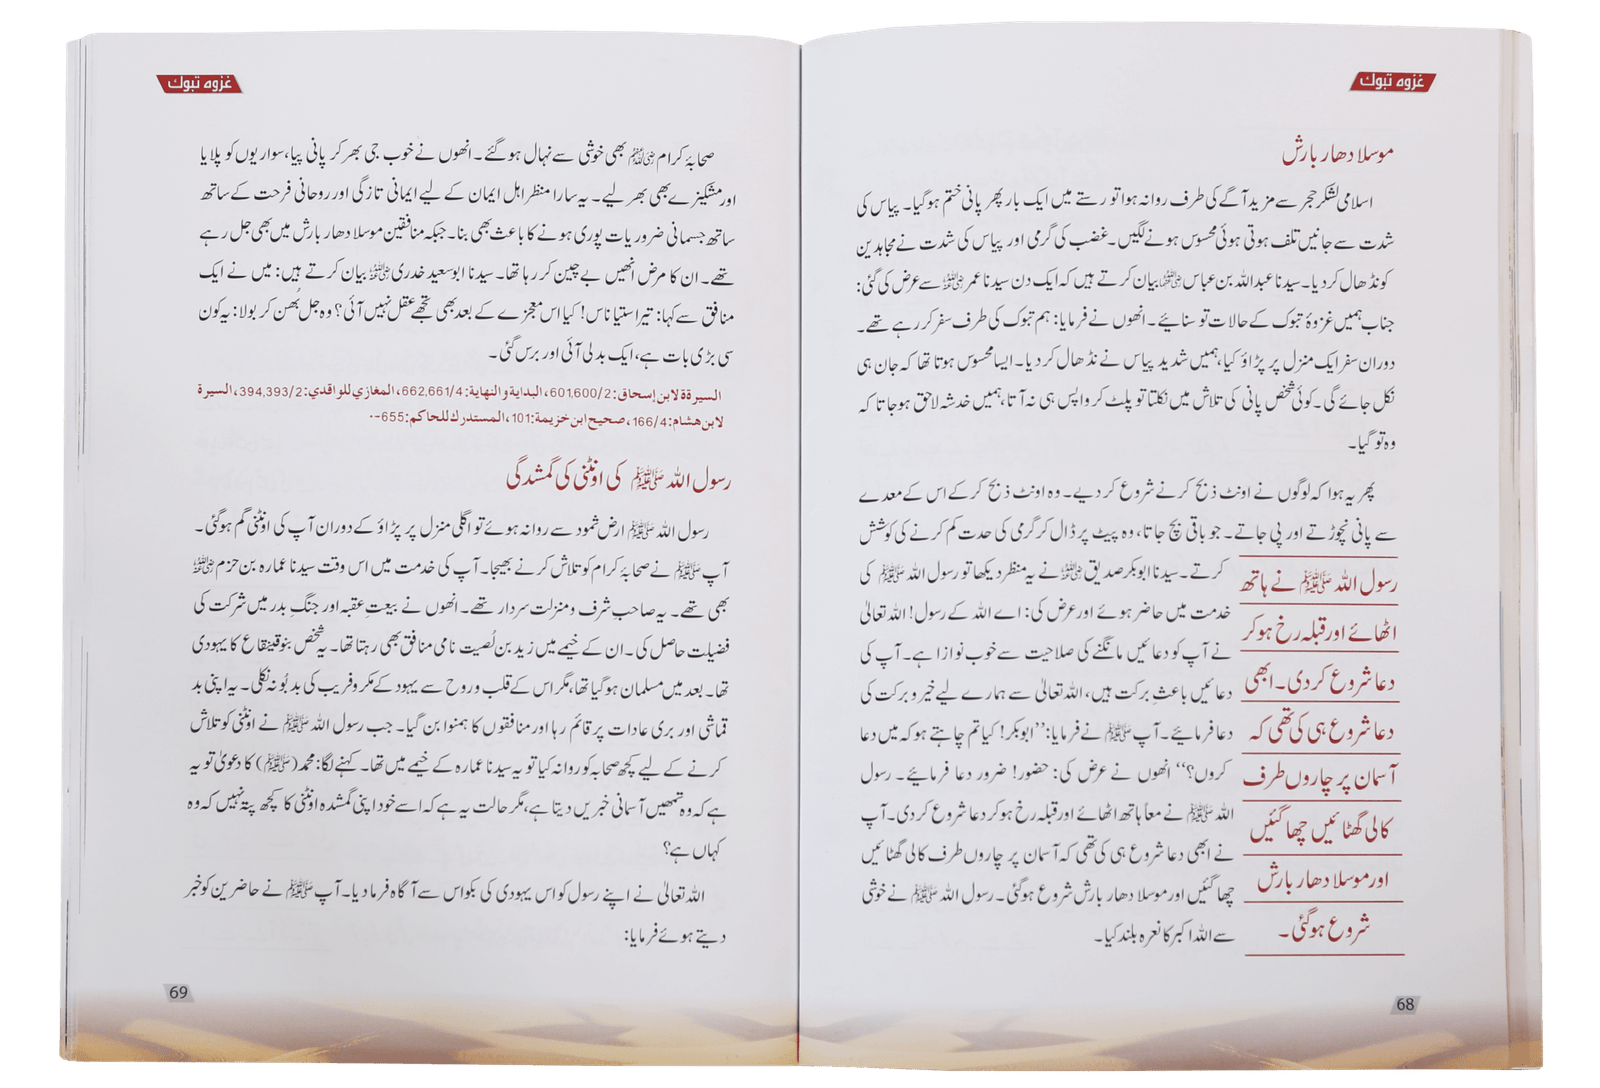 غزوہ تبوک
موسلا دھار بارش
اسلامی لشکر حجر سے مزید آگے کی طرف روانہ ہوا تو رستے میں ایک بار پھر پانی ختم ہو گیا۔ پیاس کی
شدت سے جانیں تلف ہوتی ہوئی محسوس ہونے لگیں۔ غضب کی گرمی اور پیاس کی شدت نے مجاہدین
کو نڈھال کر دیا۔ سیدنا عبداللہ بن عباس رضی اللہ عنہ بیان کرتے ہیں کہ ایک دن سیدنا عمر رضی اللہ عنہ سے عرض کی گئی:
جناب ہمیں غزوۂ تبوک کے حالات تو سنائیے۔ انھوں نے فرمایا: ہم تبوک کی طرف سفر کر رہے تھے۔
دوران سفر ایک منزل پر پڑاؤ کیا، ہمیں شدید پیاس نے نڈھال کر دیا۔ ایسا محسوس ہوتا تھا کہ جان ہی
نکل جائے گی۔ کوئی شخص پانی کی تلاش میں نکلتا تو پلٹ کر واپس ہی نہ آتا، ہمیں خدشہ لاحق ہو جاتا کہ
وہ تو گیا۔
پھر یہ ہوا کہ لوگوں نے اونٹ ذبح کرنے شروع کر دیے۔ وہ اونٹ ذبح کر کے اس کے معدے
سے پانی نچوڑتے اور پی جاتے۔ جو باقی بچ جاتا، وہ پیٹ پر ڈال کر گرمی کی حدت کم کرنے کی کوشش
کرتے۔ سیدنا ابوبکر صدیق رضی اللہ عنہ نے یہ منظر دیکھا تو رسول اللہ ﷺ کی
خدمت میں حاضر ہوئے اور عرض کی: اے اللہ کے رسول! اللہ تعالیٰ
نے آپ کو دعائیں مانگنے کی صلاحیت سے خوب نوازا ہے۔ آپ کی
دعائیں باعثِ برکت ہیں، اللہ تعالیٰ سے ہمارے لیے خیر و برکت کی
دعا فرمائیے۔ آپ ﷺ نے فرمایا: ’’ابوبکر! کیا تم چاہتے ہو کہ میں دعا
کروں؟‘‘ انھوں نے عرض کی: حضور! ضرور دعا فرمائیے۔ رسول
اللہ ﷺ نے معاً ہاتھ اٹھائے اور قبلہ رخ ہو کر دعا شروع کر دی۔ آپ
نے ابھی دعا شروع ہی کی تھی کہ آسمان پر چاروں طرف کالی گھٹائیں
چھا گئیں اور موسلا دھار بارش شروع ہو گئی۔ رسول اللہ ﷺ نے خوشی
سے اللہ اکبر کا نعرہ بلند کیا۔
رسول اللہ ﷺ نے ہاتھ
اٹھائے اور قبلہ رخ ہو کر
دعا شروع کر دی۔ ابھی
دعا شروع ہی کی تھی کہ
آسمان پر چاروں طرف
کالی گھٹائیں چھا گئیں
اور موسلا دھار بارش
شروع ہو گئی۔
68
غزوہ تبوک
صحابۂ کرام رضی اللہ عنہم بھی خوشی سے نہال ہو گئے۔ انھوں نے خوب جی بھر کر پانی پیا، سواریوں کو پلایا
اور مشکیزے بھی بھر لیے۔ یہ سارا منظر اہل ایمان کے لیے ایمانی تازگی اور روحانی فرحت کے ساتھ
ساتھ جسمانی ضروریات پوری ہونے کا باعث بھی بنا۔ جبکہ منافقین موسلا دھار بارش میں بھی جل رہے
تھے۔ ان کا مرض انھیں بے چین کر رہا تھا۔ سیدنا ابوسعید خدری رضی اللہ عنہ بیان کرتے ہیں: میں نے ایک
منافق سے کہا: تیرا ستیاناس! کیا اس معجزے کے بعد بھی تجھے عقل نہیں آئی؟ وہ جل بُھن کر بولا: یہ کون
سی بڑی بات ہے، ایک بدلی آئی اور برس گئی۔
السيرة لابن إسحاق: 601,600/2، البداية والنهاية: 662,661/4، المغازي للواقدي: 394,393/2، السيرة
لابن هشام: 166/4، صحيح ابن خزيمة: 101، المستدرك للحاكم: 655-٠
رسول اللہ ﷺ کی اونٹنی کی گمشدگی
رسول اللہ ﷺ ارض ثمود سے روانہ ہوئے تو اگلی منزل پر پڑاؤ کے دوران آپ کی اونٹنی گم ہو گئی۔
آپ ﷺ نے صحابۂ کرام کو تلاش کرنے بھیجا۔ آپ کی خدمت میں اس وقت سیدنا عمارہ بن حزم رضی اللہ عنہ
بھی تھے۔ یہ صاحبِ شرف و منزلت سردار تھے۔ انھوں نے بیعتِ عقبہ اور جنگِ بدر میں شرکت کی
فضیلت حاصل کی۔ ان کے خیمے میں زید بن لُصیت نامی منافق بھی رہتا تھا۔ یہ شخص بنو قینقاع کا یہودی
تھا۔ بعد میں مسلمان ہو گیا تھا، مگر اس کے قلب و روح سے یہود کے مکر و فریب کی بدبُو نہ نکلی۔ یہ اپنی بد
قماشی اور بری عادات پر قائم رہا اور منافقوں کا ہمنوا بن گیا۔ جب رسول اللہ ﷺ نے اونٹنی کو تلاش
کرنے کے لیے کچھ صحابہ کو روانہ کیا تو یہ سیدنا عمارہ کے خیمے میں تھا۔ کہنے لگا: محمد (ﷺ) کا دعویٰ تو یہ
ہے کہ وہ تمھیں آسمانی خبریں دیتا ہے، مگر حالت یہ ہے کہ اسے خود اپنی گمشدہ اونٹنی کا کچھ پتہ نہیں کہ وہ
کہاں ہے؟
اللہ تعالیٰ نے اپنے رسول کو اس یہودی کی بکواس سے آگاہ فرما دیا۔ آپ ﷺ نے حاضرین کو خبر
دیتے ہوئے فرمایا:
69